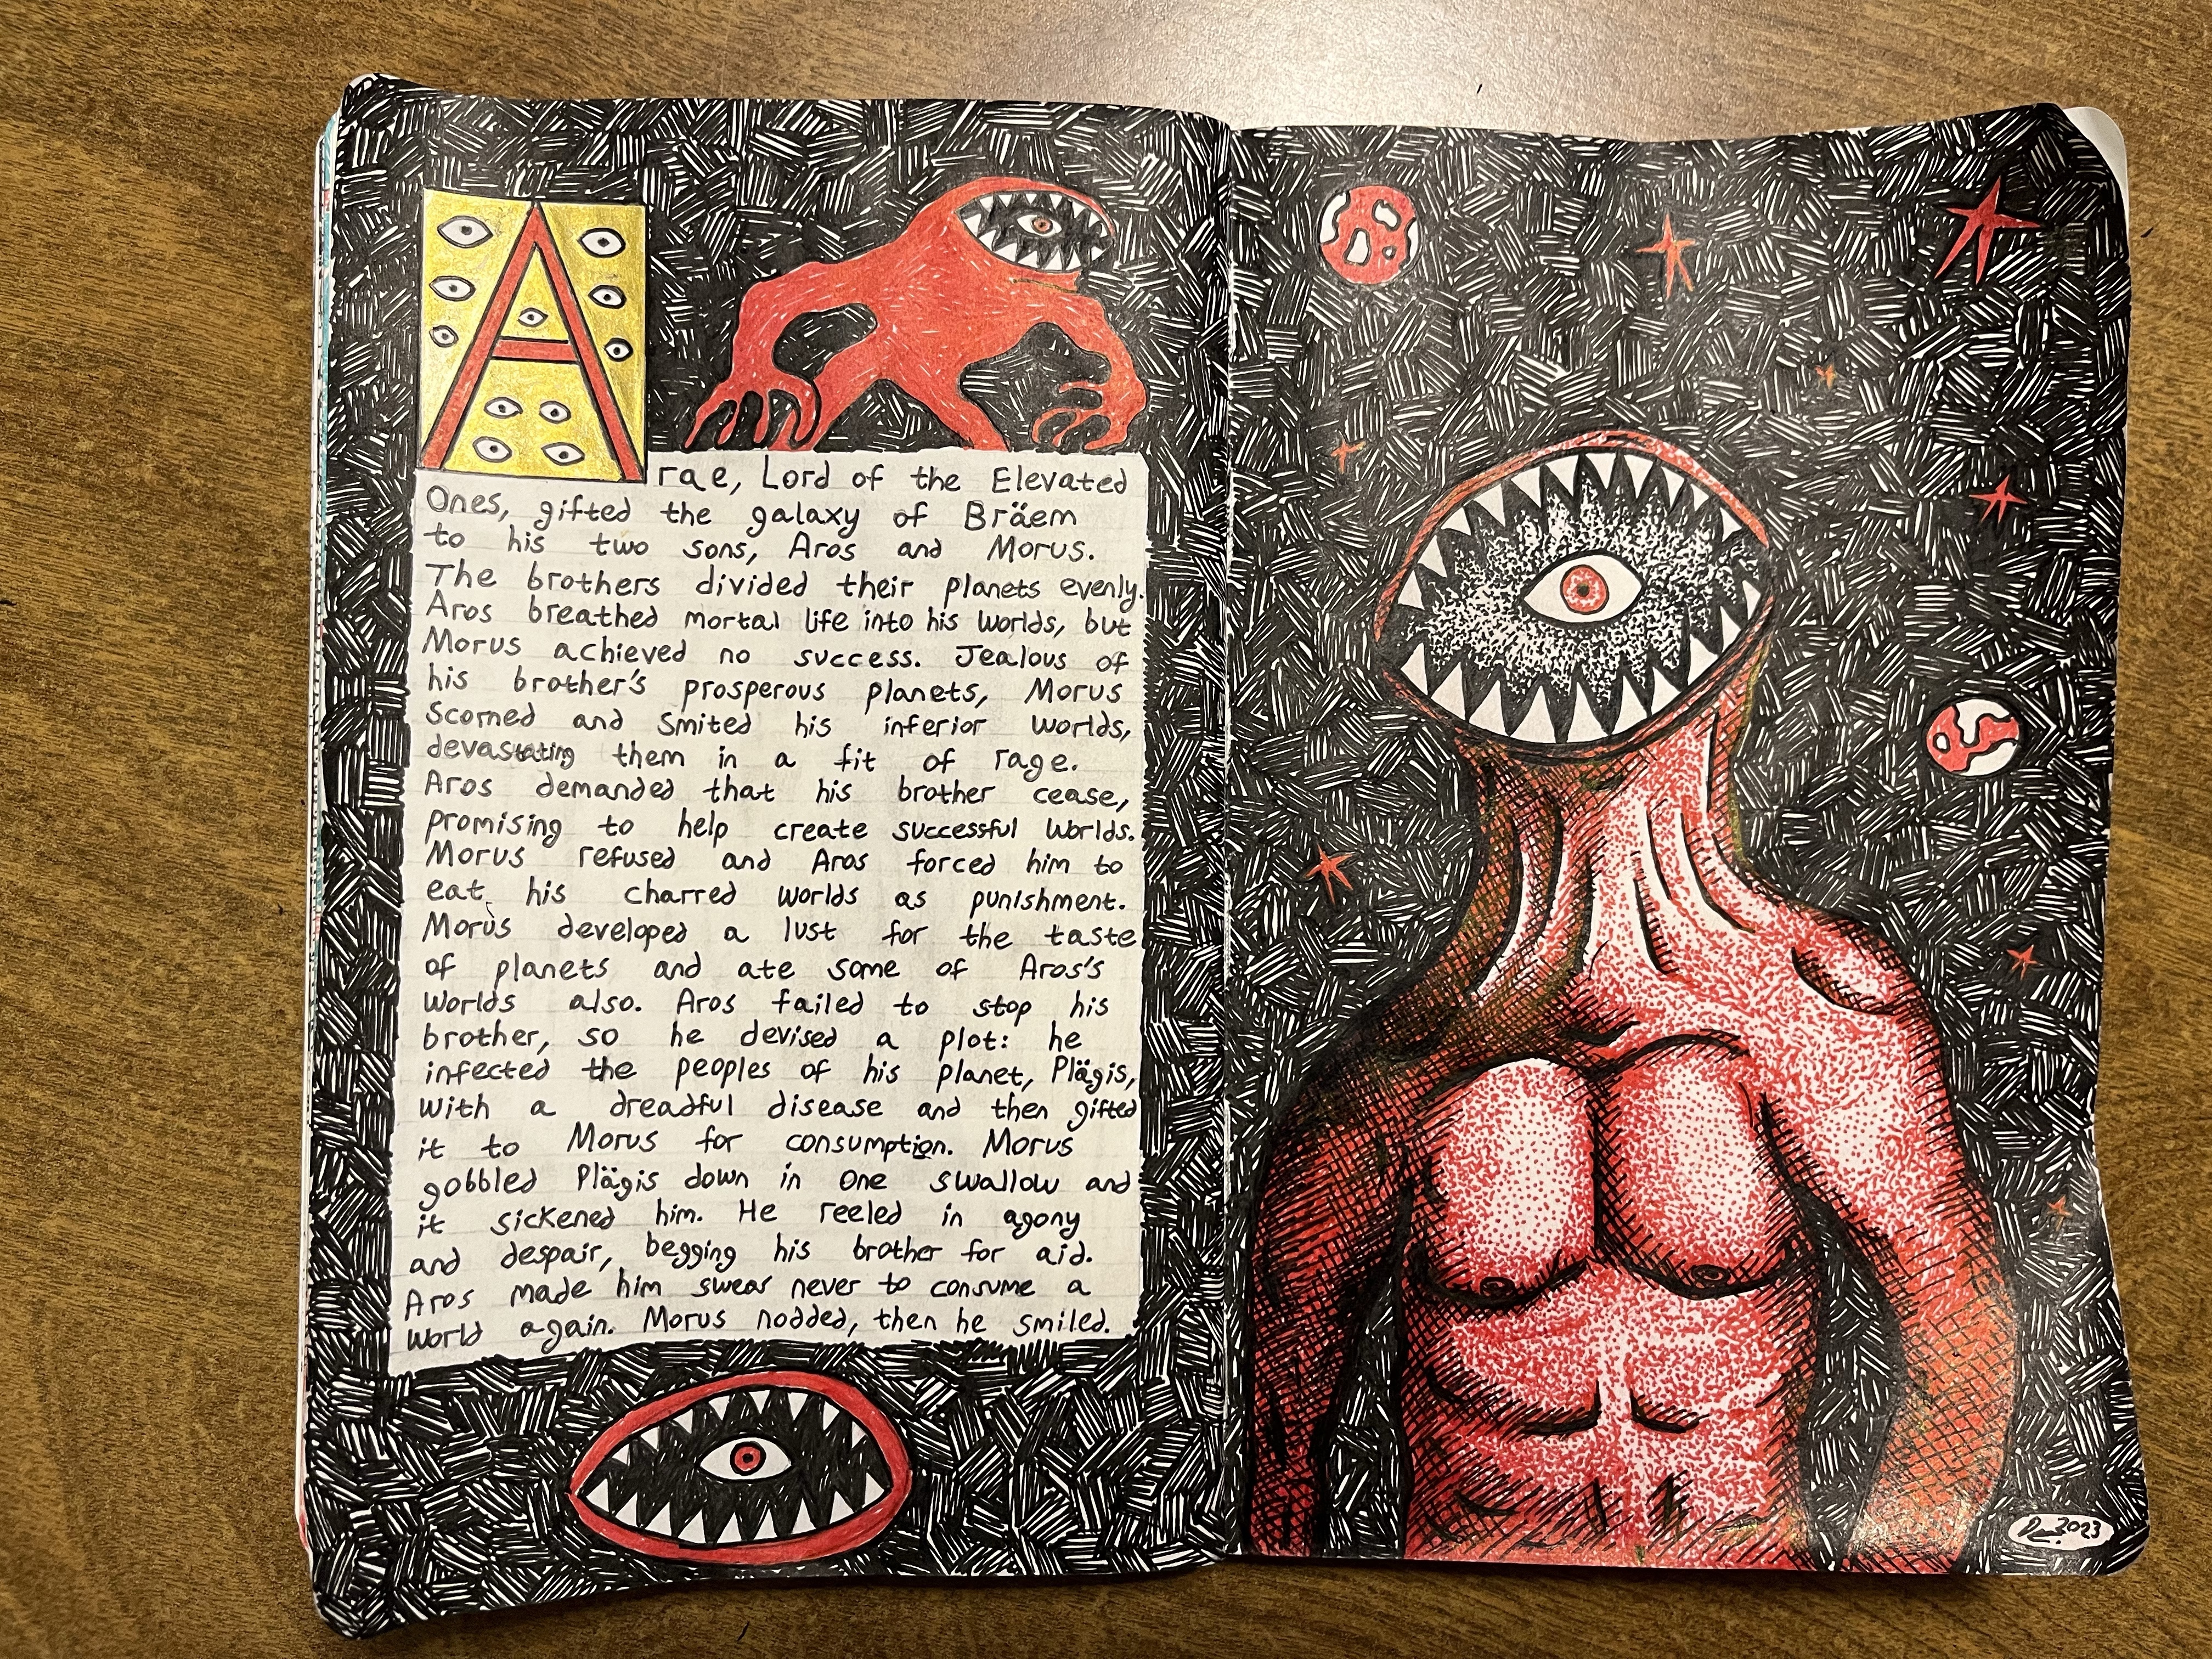 Arae, Lord of the Elevated
Ones, gifted the galaxy of Bräem
to his two sons, Aros and Morus.
The brothers divided their planets evenly.
Aros breathed mortal life into his worlds, but
Morus achieved no success. Jealous of
his brother's prosperous planets, Morus
scorned and smited his inferior worlds,
devastating them in a fit of rage.
Aros demanded that his brother cease,
promising to help create successful worlds.
Morus refused and Aros forced him to
eat his charred worlds as punishment.
Morus developed a lust for the taste
of planets and ate some of Aros's
worlds also. Aros failed to stop his
brother, so he devised a plot: he
infected the peoples of his planet, Plägis,
with a dreadful disease and then gifted
it to Morus for consumption. Morus
gobbled Plägis down in one swallow and
it sickened him. He reeled in agony
and despair, begging his brother for aid.
Aros made him swear never to consume a
world again. Morus nodded, then he smiled.
2023